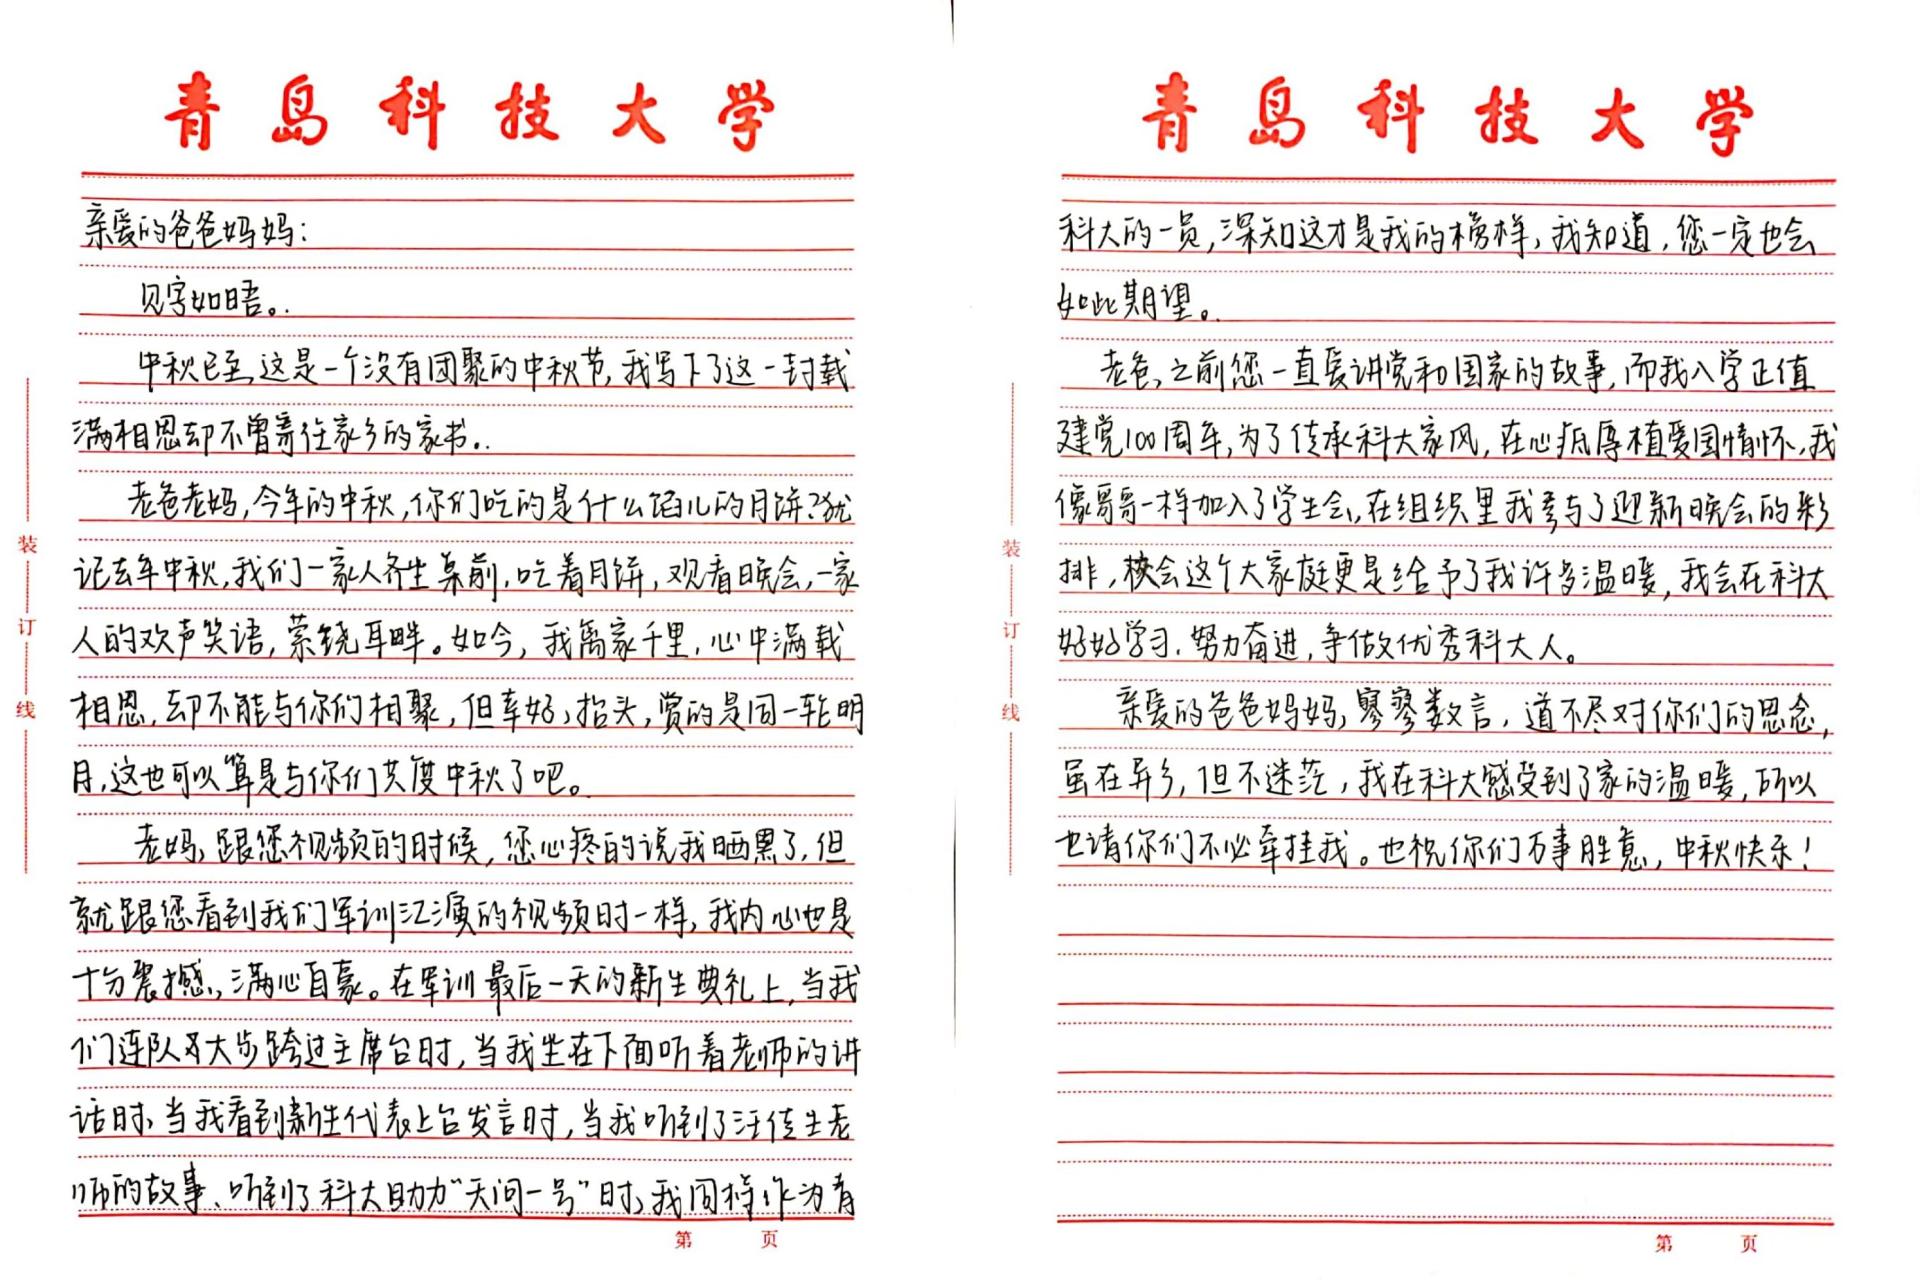 青岛科技大学
亲爱的爸爸妈妈:
见字如晤。
中秋已至,这是一个没有团聚的中秋节,我写下了这一封载
满相思却不曾寄往家乡的家书。
老爸老妈,今年的中秋,你们吃的是什么馅儿的月饼?犹
记去年中秋,我们一家人齐坐桌前,吃着月饼,观看晚会,一家
人的欢声笑语,萦绕耳畔。如今,我离家千里,心中满载
相思,却不能与你们相聚,但幸好,抬头,赏的是同一轮明
月,这也可以算是与你们共度中秋了吧。
老妈,跟您视频的时候,您心疼的说我晒黑了,但
就跟您看到我们军训汇演的视频时一样,我内心也是
十分震撼,满心自豪。在军训最后一天的新生典礼上,当我
们连队大步跨过主席台时,当我坐在下面听着老师的讲
话时,当我看到新生代表上台发言时,当我听到了汪佳生老
师的故事、听到了科大助力“天问一号”时,我同样作为青
装
订
线
第 页
青岛科技大学
科大的一员,深知这才是我的榜样,我知道,您一定也会
如此期望。
老爸,之前您一直爱讲党和国家的故事,而我入学正值
建党100周年,为了传承科大家风,在心底厚植爱国情怀,我
像哥哥一样加入了学生会,在组织里我参与了迎新晚会的彩
排,校会这个大家庭更是给予了我许多温暖,我会在科大
好好学习,努力奋进,争做优秀科大人。
亲爱的爸爸妈妈,寥寥数言,道不尽对你们的思念,
虽在异乡,但不迷茫,我在科大感受到了家的温暖,所以
也请你们不必牵挂我。也祝你们万事胜意,中秋快乐!
装
订
线
第 页